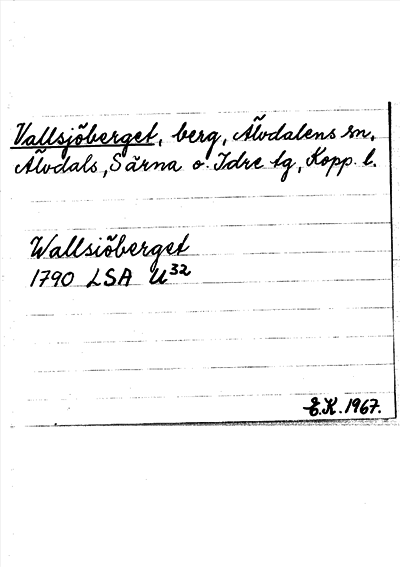 Vallsjöberget, berg, Älvdalens sn,
Älvdals, Särna o. Idre tg, Kopp. l.
Wallsiöberget
1790 LSA U32
E.K. 1967.